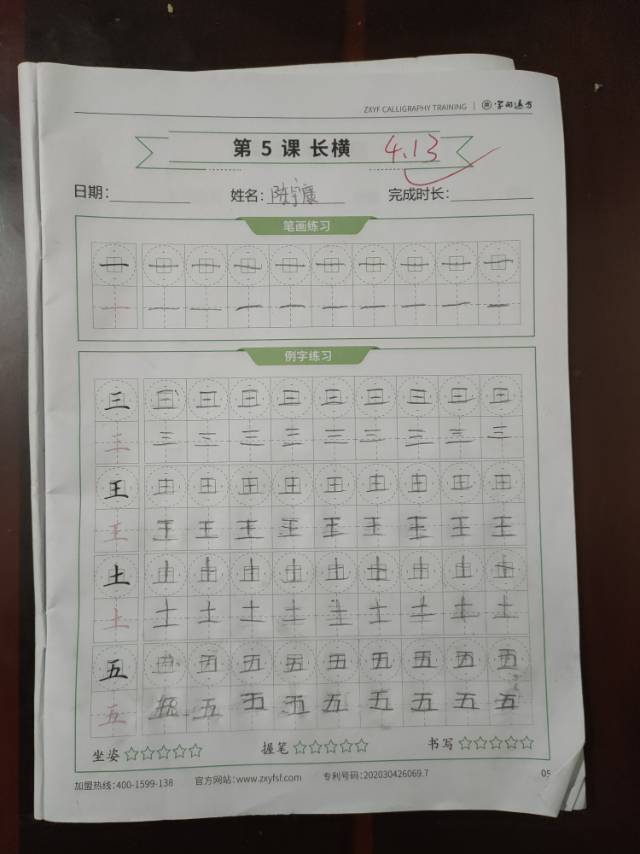 ZXYF CALLIGRAPHY TRAINING | 字的遠方
第 5 课 长横 4.13
日期: 姓名: 陈宇康 完成时长:
笔画练习
一 一 一 一 一 一 一 一 一 一
一 一 一 一 一 一 一 一 一 一
例字练习
三 三 三 三 三 三 三 三 三 三
三 三 三 三 三 三 三 三 三 三
王 王 王 王 王 王 王 王 王 王
王 王 王 王 王 王 王 王 王 王
土 土 土 土 土 土 土 土 土 土
土 土 土 土 土 土 土 土 土 土
五 五 五 五 五 五 五 五 五 五
五 五 五 五 五 五 五 五 五 五
坐姿☆☆☆☆☆ 握笔☆☆☆☆☆ 书写☆☆☆☆☆
加盟热线:400-1599-138 官方网站:www.zxyfsf.com 专利号码:202030426069.7 05